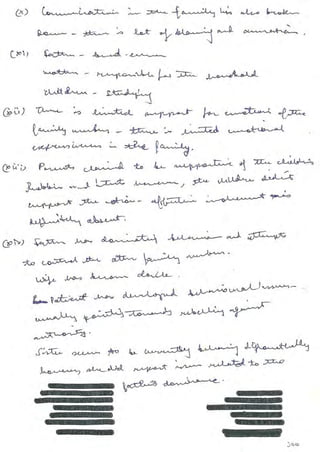 (x) Communication in the family has also broken
down - there is lot of blaming and accusation.
(xi) Father - bread-earner
Mother - responsible for the household
Children - Studying
(xii) There is limited support for emotions of the
family members - there is limited emotional
expressiveness in the family.
(xiii) Parents claimed to be supportive of the children's
hobbies and however, the children didn't
support the notion. affective involvement was
definitely absent.
(xiv) Father has dominating behaviour and attempts
to control the other family members.
Wife has become docile.
Patient has developed behavioural issues
usually pointing towards rebelling against
authority.
Sister seems to be currently behaving
however, she did report issues related to the
father's dominance.